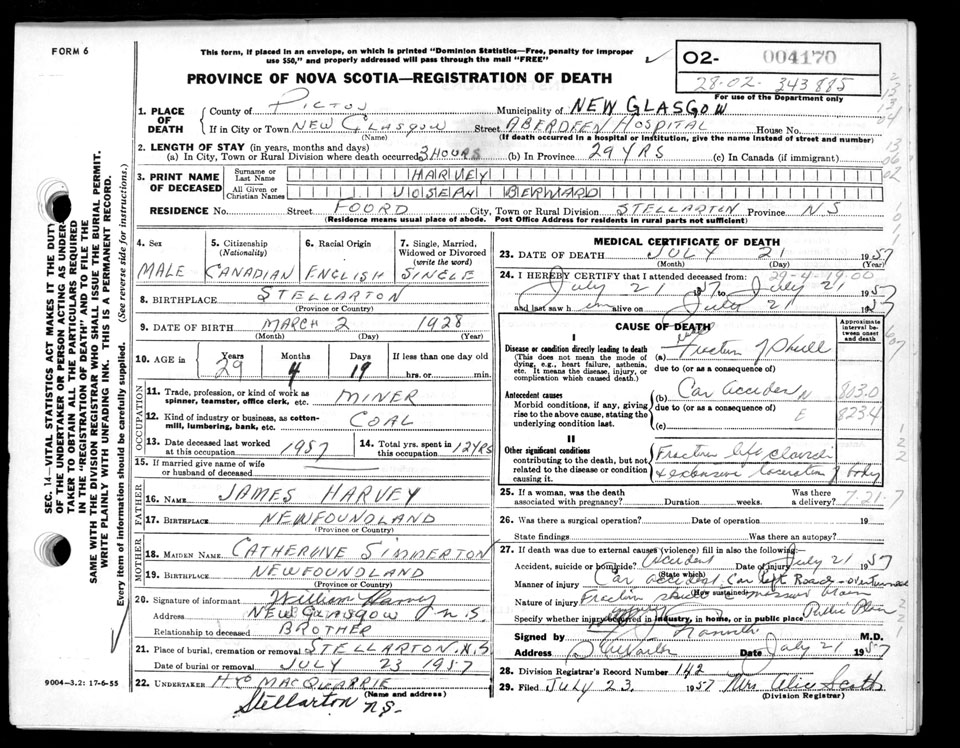 FORM 6
This form, if placed in an envelope, on which is printed "Dominion Statistics—Free, penalty for improper
use $50," and properly addressed will pass through the mail "FREE"
PROVINCE OF NOVA SCOTIA—REGISTRATION OF DEATH
02- 004170
28-02- 343885
For use of the Department only
SEC. 14—VITAL STATISTICS ACT MAKES IT THE DUTY
OF THE UNDERTAKER OR PERSON ACTING AS UNDER-
TAKER TO OBTAIN ALL THE PARTICULARS REQUIRED
IN THE "REGISTRATION OF DEATH" AND TO FILE THE
SAME WITH THE DIVISION REGISTRAR WHO SHALL ISSUE THE BURIAL PERMIT.
WRITE PLAINLY WITH UNFADING INK. THIS IS A PERMANENT RECORD.
Every item of information should be carefully supplied. (See reverse side for instructions.)
1. PLACE OF DEATH
County of PICTOU Municipality of NEW GLASGOW
If in City or Town NEW GLASGOW Street ABERDEEN HOSPITAL House No.
(Name) (If death occurred in a hospital or institution, give the name instead of street and number)
2. LENGTH OF STAY (in years, months and days)
(a) In City, Town or Rural Division where death occurred 3 HOURS (b) In Province 29 YRS (c) In Canada (if immigrant)
3. PRINT NAME OF DECEASED
Surname or Last Name HARVEY
All Given or Christian Names JOSEPH BERNARD
RESIDENCE No. Street FOORD City, Town or Rural Division STELLARTON Province N S
(Residence means usual place of abode. Post Office Address for residents in rural parts not sufficient)
4. Sex MALE
5. Citizenship (Nationality) CANADIAN
6. Racial Origin ENGLISH
7. Single, Married, Widowed or Divorced (write the word) SINGLE
8. BIRTHPLACE STELLARTON
(Province or Country)
9. DATE OF BIRTH MARCH 2 1928
(Month) (Day) (Year)
10. AGE in Years 29 Months 4 Days 19 If less than one day old
hrs. or min.
OCCUPATION
11. Trade, profession, or kind of work as spinner, teamster, office clerk, etc. MINER
12. Kind of industry or business, as cotton-mill, lumbering, bank, etc. COAL
13. Date deceased last worked at this occupation 1957
14. Total yrs. spent in this occupation 12 YRS
15. If married give name of wife or husband of deceased
FATHER
16. NAME JAMES HARVEY
17. BIRTHPLACE NEWFOUNDLAND
(Province or Country)
MOTHER
18. MAIDEN NAME CATHERINE SIMMERTON
19. BIRTHPLACE NEWFOUNDLAND
(Province or Country)
20. Signature of informant William Harvey
Address NEW GLASGOW N.S.
Relationship to deceased BROTHER
21. Place of burial, cremation or removal STELLARTON. N.S
Date of burial or removal JULY 23 1957
22. UNDERTAKER MACQUARRIE
(Name and address)
Stellarton N.S.
9004-3.2: 17-6-55
MEDICAL CERTIFICATE OF DEATH
23. DATE OF DEATH JULY 21 1957
(Month) (Day) (Year)
29-4-19-00
24. I HEREBY CERTIFY that I attended deceased from:
July 21 1957 to July 21 1957
and last saw h im alive on July 21 1957
CAUSE OF DEATH
Approximate interval between onset and death
I
Disease or condition directly leading to death
(This does not mean the mode of dying, e.g., heart failure, asthenia, etc. It means the disease, injury, or complication which caused death.)
(a) Fracture of Skull
due to (or as a consequence of)
Antecedent causes
Morbid conditions, if any, giving rise to the above cause, stating the underlying condition last.
(b) Car accident N 803.0
due to (or as a consequence of) E 8234
(c)
II
Other significant conditions
contributing to the death, but not related to the disease or condition causing it.
Fracture left clavicle
& extensive laceration of body
25. If a woman, was the death associated with pregnancy? Duration weeks. Was there a delivery? 7-21-7
26. Was there a surgical operation? Date of operation 19
State findings Was there an autopsy?
27. If death was due to external causes (violence) fill in also the following:
Accident, suicide or homicide? Accident Date of injury July 21 1957
(State which)
Manner of injury Car accident Car left Road - overturned
(How sustained)
Nature of injury Fracture skull brain
Specify whether injury occurred in industry, in home, or in public place Public Place
Signed by M.D.
Address Stellarton Date July 21 1957
28. Division Registrar's Record Number 142
29. Filed July 23. 1957 Mrs Alice Scott
(Division Registrar)